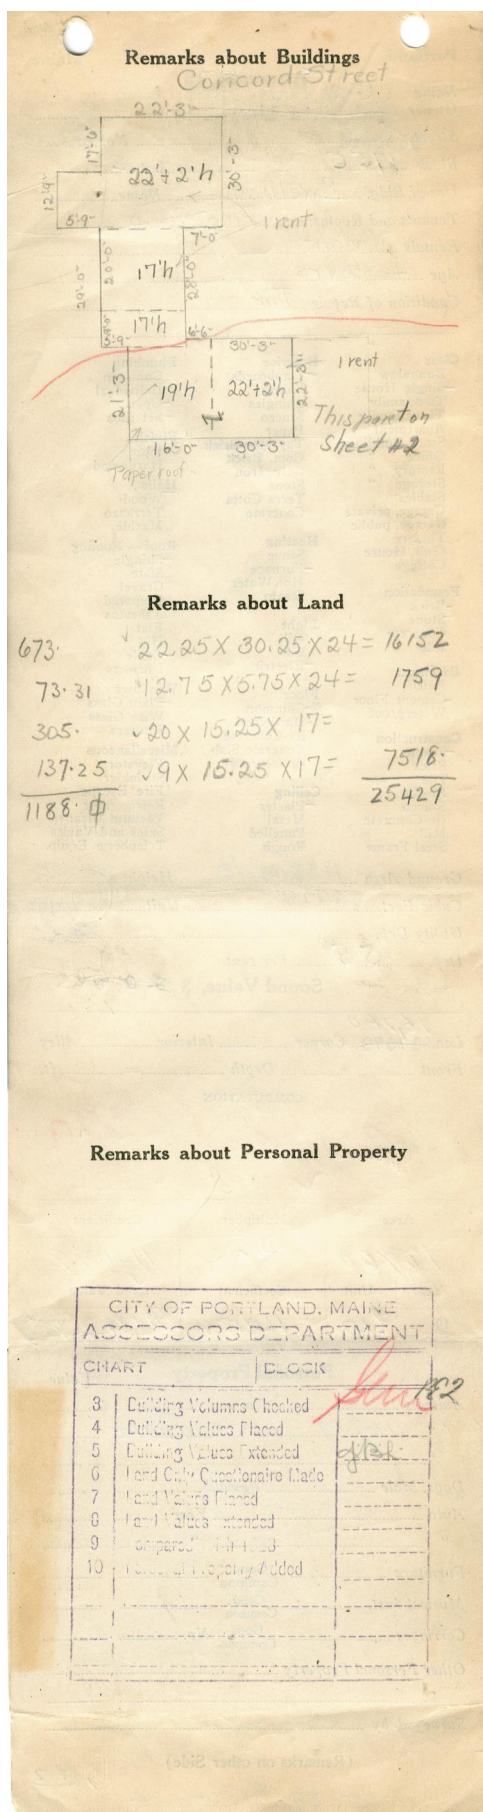 Remarks about Buildings
Concord Street
22'-3"
17'-6"
22'+2'h
30'-3"
12'9"
5'-9"
7'-0"
1 rent
20'-0"
17'h
28'-0"
29'-0"
17'h
5'-9"
30'-3"
1 rent
21'-3"
19'h
22'+2'h
22'-3"
This part on
Sheet #2
16'-0"
30'-3"
Paper roof
Remarks about Land
673.
22.25 X 30.25 X 24 = 16152
73.31
12.75 X 5.75 X 24 = 1759
305.
20 X 15.25 X 17 =
137.25
9 X 15.25 X 17 = 7518.
1188.
25429
Remarks about Personal Property
CITY OF PORTLAND, MAINE
ASSESSORS DEPARTMENT
CHART BLOCK
3 Building Volumes Checked
4 Building Values Placed
5 Building Values Extended
6 Land Only Questionaire Made
7 Land Values Placed
8 Land Values Extended
9 Compared
10 Personal Property Added
(Remarks on other Side)